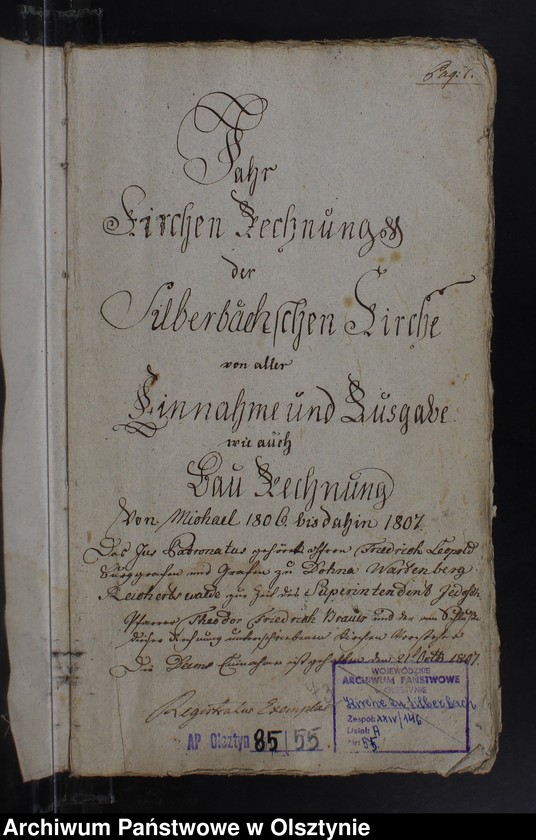 Pag: 1.
Jahr
Kirchen Rechnung
der
Silberbächschen Kirche
von aller
Einnahme und Ausgabe
wie auch
Bau Rechnung
Von Michael 1806. bis dahin 1807.
Das Jus Patronatus gehört Friedrich Leopold
Burggrafen und Grafen zu Dohna Wartenberg
Reichertswalde zur Zeit des Superintendent
Pfarrer Theodor Friedrich und der am Schluß
dieser Rechnung unterschriebenen Kirchen Vorsteher
Die Einnahme ist gehalten den 21 Octb 1807.
Registratur Exemplar
AP Olsztyn 85/55
WOJEWÓDZKIE
ARCHIWUM PAŃSTWOWE
W OLSZTYNIE
Kirche zu Silberbach
Zespół: XXIV/146
Dział: A
Nr: 55
Archiwum Państwowe w Olsztynie